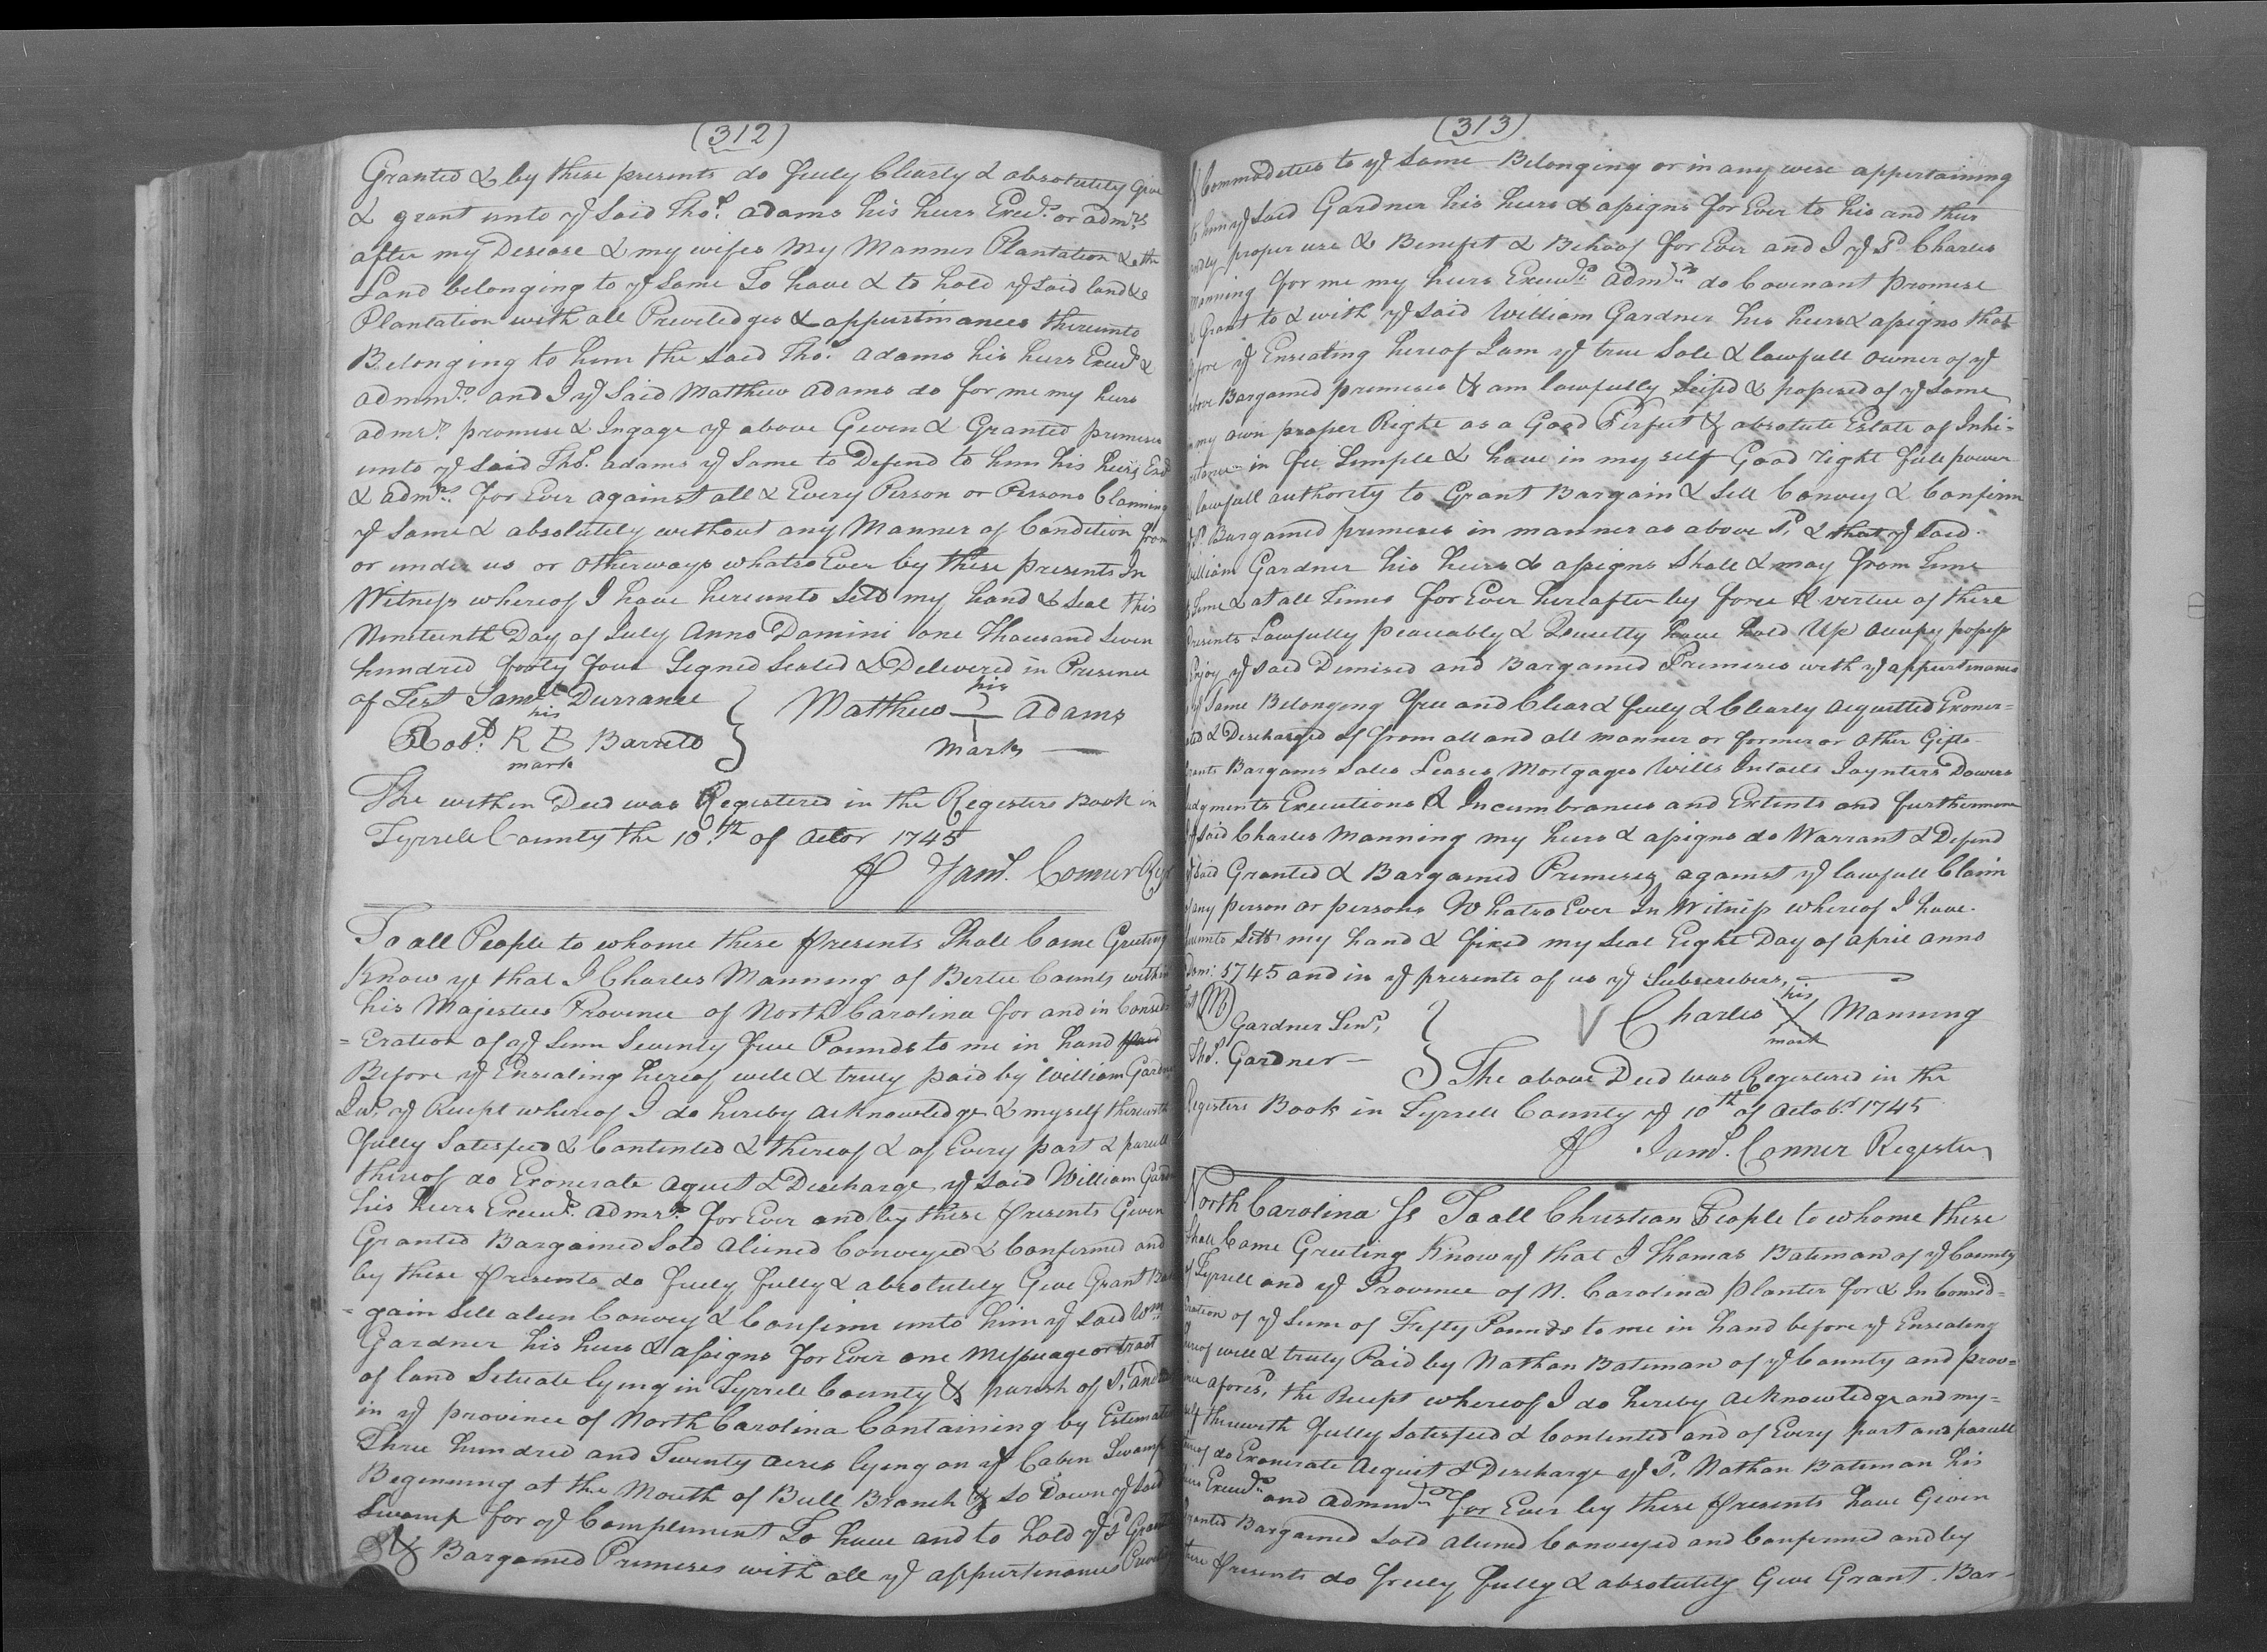 (312)
Granted & by these presents do freely Clearly & absolutely Give
& grant unto ye Said Thos. Adams his heirs Execrs. or admrs
after my Desease & my wifes my Manner Plantation & the
Land belonging to ye Same To have & to hold ye Said land &
Plantation with all Preveledges & appurtinances thereunto
Belonging to him the Said Thos. Adams his heirs Execrs &
admrs. and I ye Said Matthew Adams do for me my heirs
admrs. promise & Ingage ye above Given & Granted premises
unto ye Said Thos. Adams ye Same to Defend to him his heirs Exrs
& admrs. for Ever against all & Every Person or Persons Claiming
ye Same & absolutely without any Manner of Condition from
or under us or otherways whatsoEver by these presents In
Witness whereof I have hereunto Sett my hand & Seal this
Nineteenth Day of July Anno Domini one Thousand Seven
hundred forty four Signed Sealed & Delivered in Presence
of Test Samll Durrance
his
Robt. R B Barretts
mark
his
Matthew Adams
mark
The within Deed was Registered in the Registers Book in
Tyrrell County the 10th of Octor 1745
Jams. Conner Regr
To all People to whome these presents Shall Come Greeting
Know ye that I Charles Manning of Bertie County within
his Majesties Province of North Carolina for and in Consid
=Eration of ye Sum Seventy five Pounds to me in hand paid
Before ye Ensealing hereof well & truly paid by William Gardner
Junr. ye Receipt whereof I do hereby acknowledge & myself therewith
fully Satisfied & Contented & thereof & of Every part & parcell
thereof do Exonerate aquit & Discharge ye Said William Gardn
his heirs Execrs. admrs. for Ever and by these presents Given
Granted Bargained Sold aliened Conveyed & Confirmed and
by these presents do freely fully & absolutely Give Grant Bar
=gain Sell alien Convey & Confirm unto him ye Said Wm
Gardner his heirs & assigns for Ever one Messuage or tract
of land Situate lying in Tyrrell County & parish of St. Andr
in ye province of North Carolina Containing by Estemate
Three hundred and Twenty acres lying on ye Cabin Swamp
Beginning at the Mouth of Bull Branch & so Down ye Said
Swamp for ye Complement To have and to hold ye sd Grant
& Bargained Premises with all ye appurtinances Previle
(313)
& Commodeties to ye Same Belonging or in any wise appertaining
to him ye Said Gardner his heirs & assigns for Ever to his and their
only proper use & Benefit & Behoof for Ever and I ye sd Charles
Manning for me my heirs Execrs. admrs do Covenant promise
& Grant to & with ye Said William Gardner his heirs & assigns that
before ye Ensealing hereof I am ye true Sole & lawfull owner of ye
above Bargained premises & am lawfully Seized & possesed of ye Same
in my own proper Right as a Good Perfect & absolute Estate of Inhi=
ritance in fee Simple & have in my self Good right full power
& lawfull authority to Grant Bargain & Sell Convey & Confirm
ye sd. Bargained premises in manner as above sd. & that ye Said
William Gardner his heirs & assigns Shall & may from Time
to Time & at all Times for Ever hereafter by force & vertue of these
Presents Lawfully peaceably & Quietly have hold Use occupy possess
Enjoy ye Said Demised and Bargained Premises with ye appurtinances
to ye Same Belonging free and Clear & freely & Clearly acquitted Exoner=
ated & Discharged of from all and all manner or former or other Gifts
Grants Bargains Sales Leases Mortgages Wills Intails Joynters Dowers
Judgments Executions & Incumbrances and Extents and furthermore
I ye Said Charles Manning my heirs & assigns do Warrant & Defend
ye Said Granted & Bargained Premises against ye lawfull Claim
of any person or persons WhatsoEver In Witness whereof I have
hereunto Sett my hand & fixed my Seal Eight Day of April anno
Dom: 1745 and in ye presents of us ye Subscribers,
Test W Gardner Senr,
Thos. Gardner
his
Charles X Manning
mark
The above Deed was Registered in the
Registers Book in Tyrrell County ye 10th of Octobr 1745
Jams. Conner Register
North Carolina Ss To all Christian People to whome these
Shall Come Greeting Know ye that I Thomas Bateman of ye County
of Tyrrell and ye Province of N. Carolina Planter for & In Consid=
eration of ye Sum of Fifty Pounds to me in hand before ye Ensealing
hereof well & truly Paid by Nathan Bateman of ye County and prov=
ince aforesd. the Receipt whereof I do hereby acknowledge and my=
self therewith fully Satisfied & Contented and of Every part and parcell
thereof do Exonerate Acquit & Discharge ye sd. Nathan Bateman his
heirs Execrs and admrs for Ever by these presents have Given
Granted Bargained Sold aliened Conveyed and Confirmed and by
these presents do freely fully & absolutely Give Grant Bar=